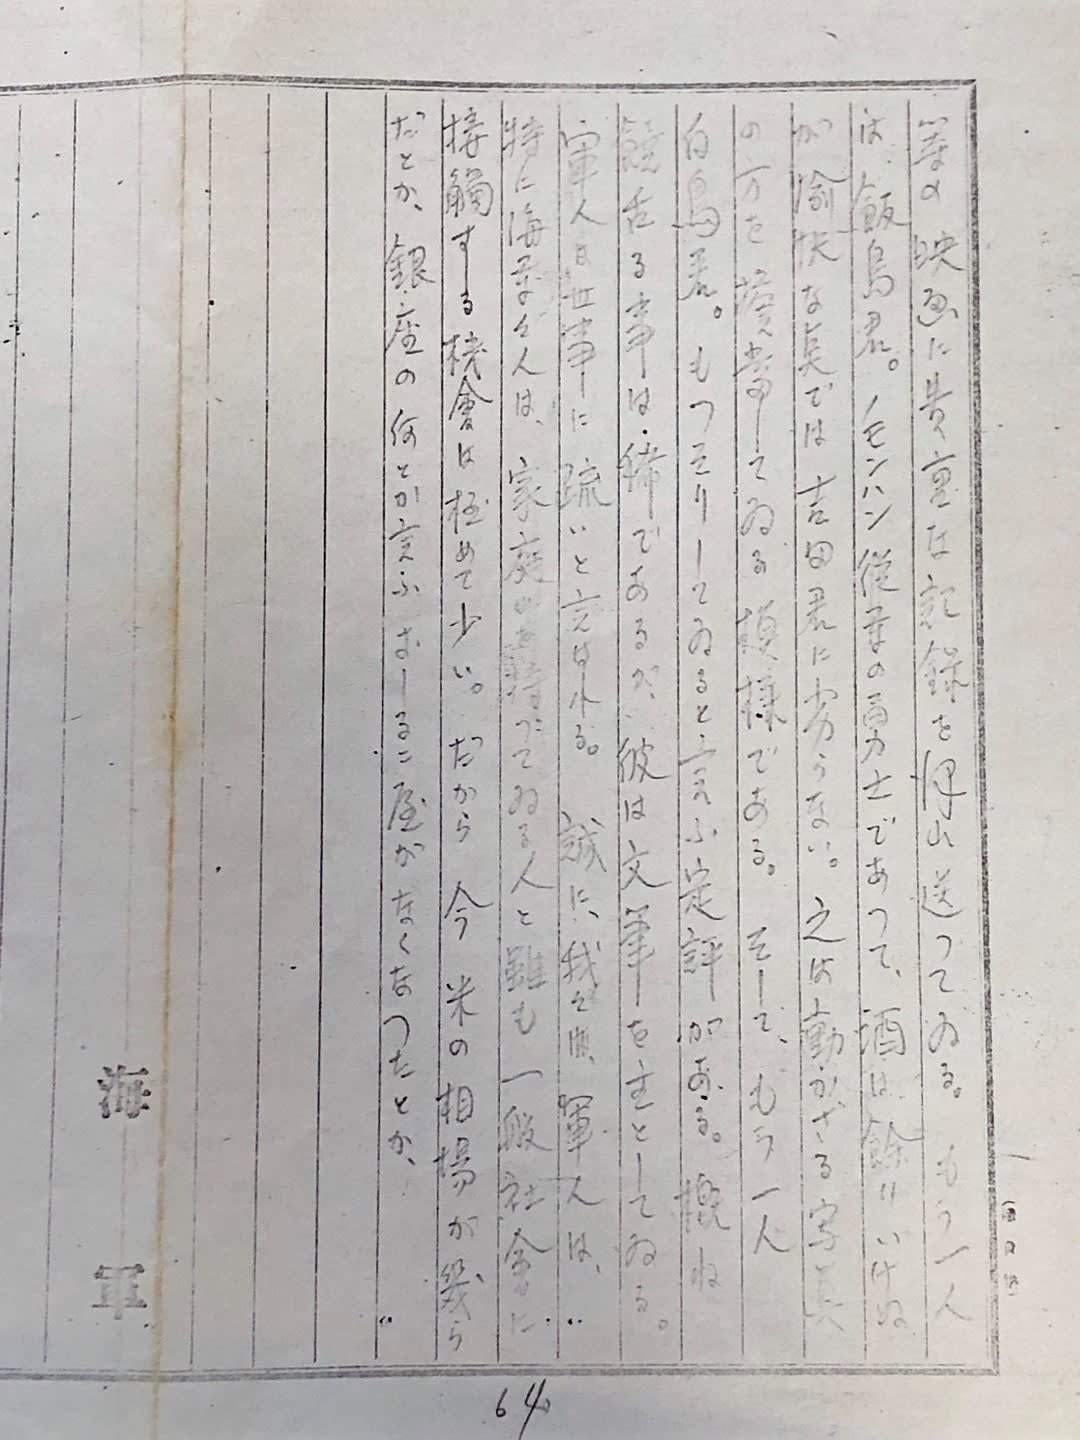 等の映画に貴重な記録を沢山送つてゐる。もう一人
は、飯島君。ノモンハン従軍の勇士であつて、酒は餘りいけぬ
が愉快な点では吉田君に劣らない。之は動かざる写真
の方を擔当してゐる模様である。そして、もう一人
白鳥君。もつそりしてゐると言ふ定評がある。概ね
饒舌る事は稀であるが、彼は文筆を主としてゐる。
軍人は世事に疏いと言はれる。誠に、我々、軍人は、
特に海軍々人は、家庭を持つてゐる人と雖も一般社会に
接觸する機會は極めて少い。だから今米の相場が幾ら
だとか、銀座の何とか言ふおしるこ屋がなくなつたとか、
海軍
64